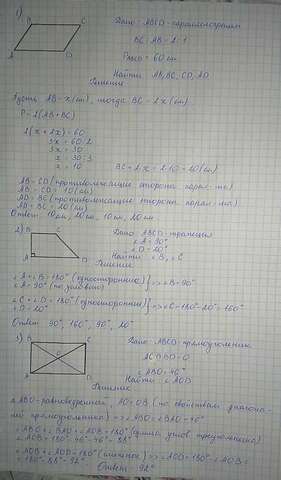 1)
B C
A D
Дано: ABCD - параллелограмм
BC:AB = 2:1
Pabcd = 60 см
Найти: AB, BC, CD, AD
Решение
Пусть AB = x (см), тогда BC = 2x (см)
P = 2(AB+BC)
2(x+2x) = 60
3x = 60:2
3x = 30
x = 30:3
x = 10 BC = 2x = 2·10 = 20 (см)
AB = CD (противолежащие стороны парал-ма)
AB = CD = 10 (см)
AD = BC (противолежащие стороны парал-ма)
AD = BC = 20 (см)
Ответ: 10 см, 20 см, 10 см, 20 см
2) B C
A D
Дано: ABCD - трапеция
∠A = 90°
∠D = 20°
Найти: ∠B, ∠C
Решение
∠A + ∠B = 180° (односторонние) } => ∠B = 90°
∠A = 90° (по условию)
∠C + ∠D = 180° (односторонние) } => ∠C = 180° - 20° = 160°
∠D = 20°
Ответ: 90°, 160°, 90°, 20°
3) B C
O
A D
Дано: ABCD - прямоугольник
AC BD = O
∠ABO = 46°
Найти: ∠AOD
Решение
△ABO - равнобедренный AO = OB (по свойствам диагона-
лей прямоугольника) => ∠ABO = ∠BAO = 46°
∠ABO + ∠BAO + ∠AOB = 180° (сумма углов треугольника)
∠AOB = 180° - 46° - 46° = 88°
∠AOB + ∠AOD = 180° (смежные) => ∠AOD = 180° - ∠AOB =
= 180° - 88° = 92°
Ответ: 92°